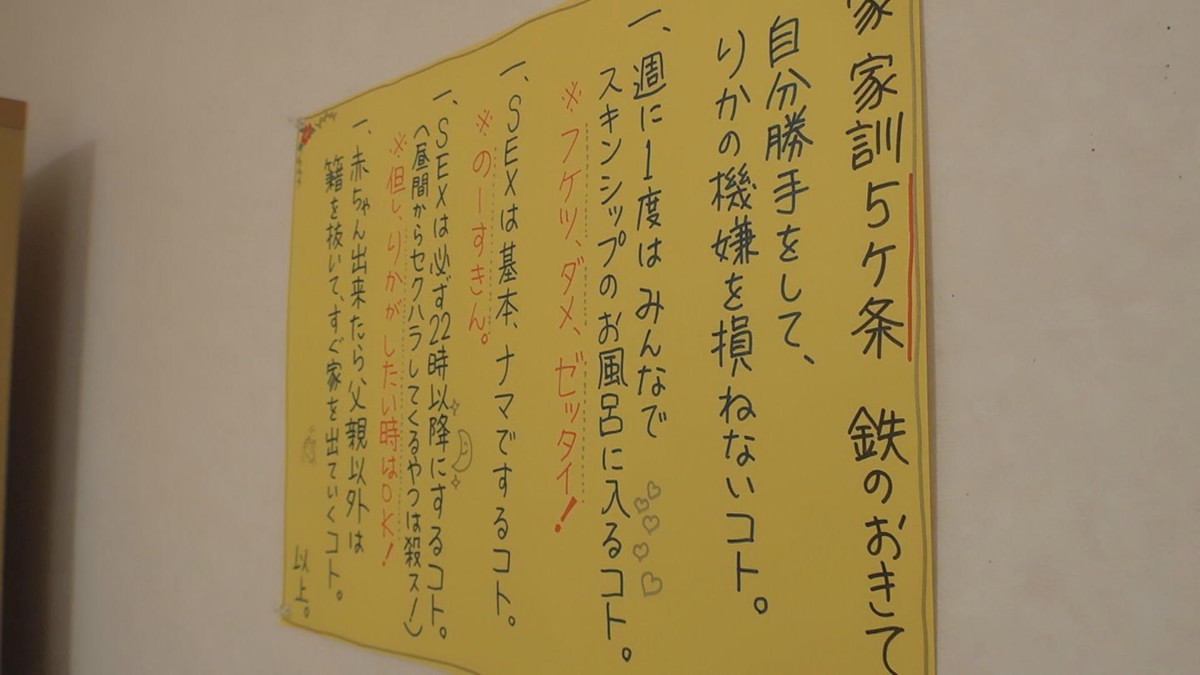 家家訓5ケ条 鉄のおきて
自分勝手をして、
りかの機嫌を損ねないコト。
一、週に1度はみんなで
スキンシップのお風呂に入るコト。
※フケツ、ダメ、ゼッタイ!
一、SEXは基本、ナマでするコト。
※のーすきん。
一、SEXは必ず22時以降にするコト。
(昼間からセクハラしてくるやつは殺ス!)
※但し、りかがしたい時はOK!
一、赤ちゃん出来たら父親以外は
籍を抜いて、すぐ家を出ていくコト。
以上。